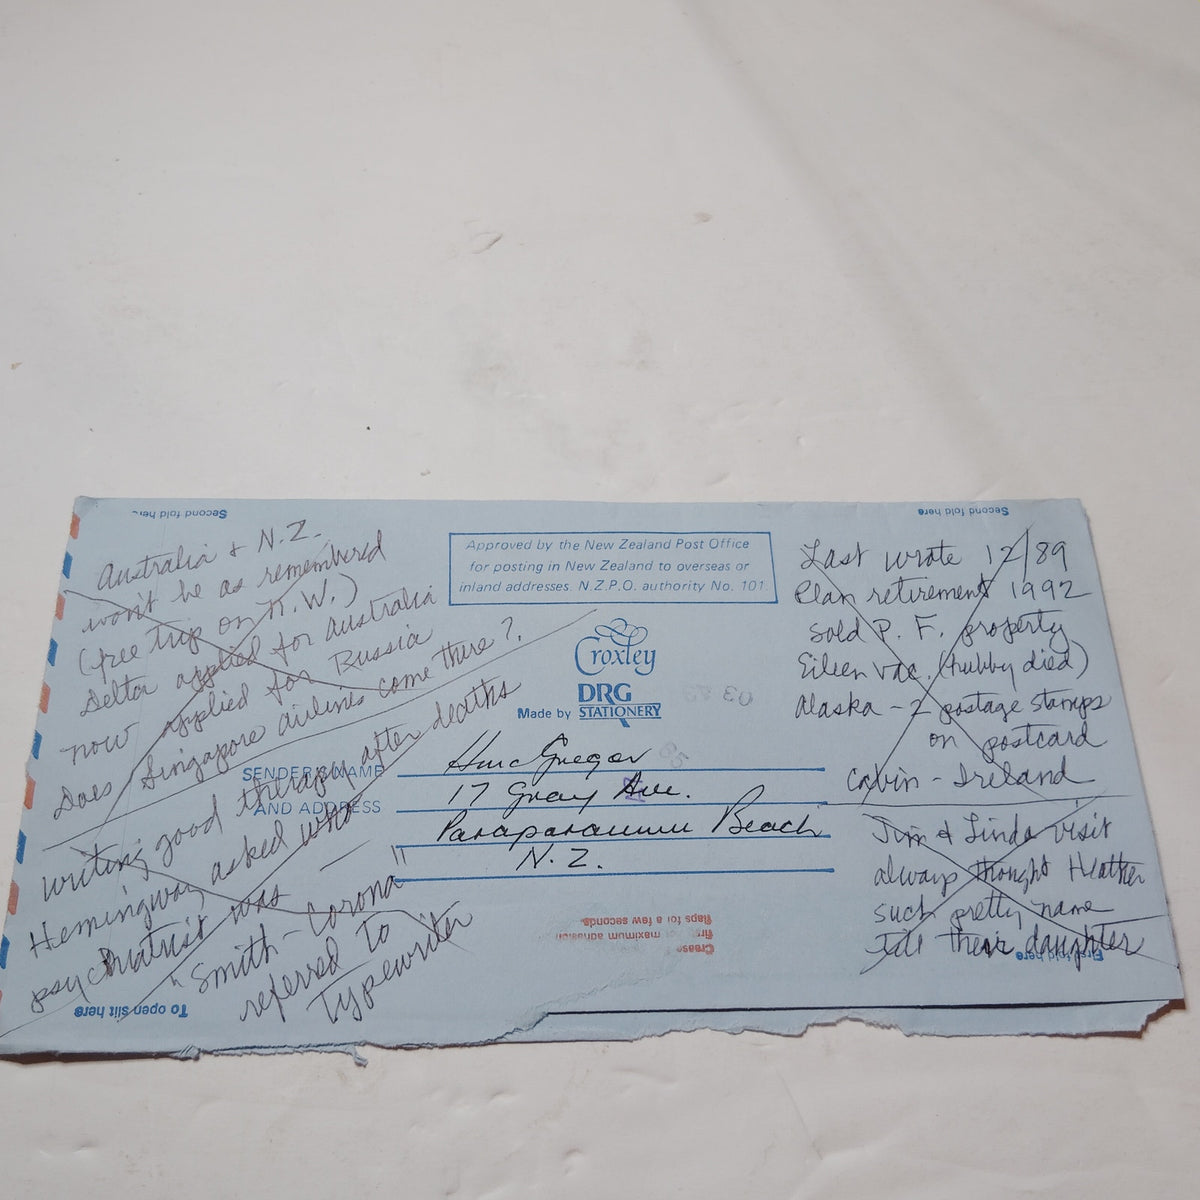 Second fold here
Second fold here
Australia & N.Z.
won't be as remembered
(free trip on N.W.)
Delta applied for Australia
now applied for Russia
Does Singapore airlines come there?
writing good therapy after deaths
Hemingway asked who
psychiatrist was —
"Smith-Corona"
referred to
Typewriter
To open slit here
Approved by the New Zealand Post Office
for posting in New Zealand to overseas or
inland addresses. N.Z.P.O. authority No. 101
Croxley
DRG
Made by STATIONERY
SENDER'S NAME
AND ADDRESS
17 Gray Ave.
Paraparaumu Beach
N.Z.
Crease
first maximum adhesion
flaps for a few seconds.
Last wrote 12/89
Plan retirement 1992
sold P. F. property
Eileen vac. (hubby died)
Alaska - 2 postage stamps
on postcard
Cabin - Ireland
Jim & Linda visit
always thought Heather
such pretty name
tell their daughter
First fold here